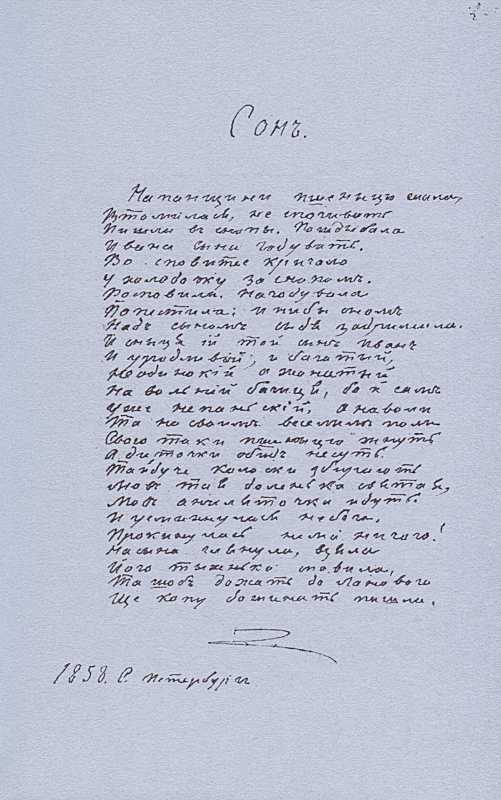 Сонъ.
На панщини пшеныцю жала,
Втомилася, не спочивать
Пишла въ снопы. Пошкандыбала
Ивана сына годувать.
Во сповите кричало
У холодочку за снопомъ.
Росповила. нагодувала
Попестила; и нибы сномъ
Надъ сыномъ сыдя задримала.
И сныця ій той сынъ Иванъ
И уродливый, и багатый,
Неодинокій а жонатый
На вольній бачиця, бо й самъ
Уже непаньскій, а наволи
Та на своимъ веселимъ поли
Свого таки пшеныцю жнуть
А диточки обидъ несуть.
колоски
Мов тая доленька
Мовъ идуть.
И усмихнулася небога.
Прокинулась нема ничого!
На сына глянула, взяла
Його тыхенько повила,
Та щобъ дожать до ланового
Ще копу дожинать пишла.
1858. С. Петербургъ